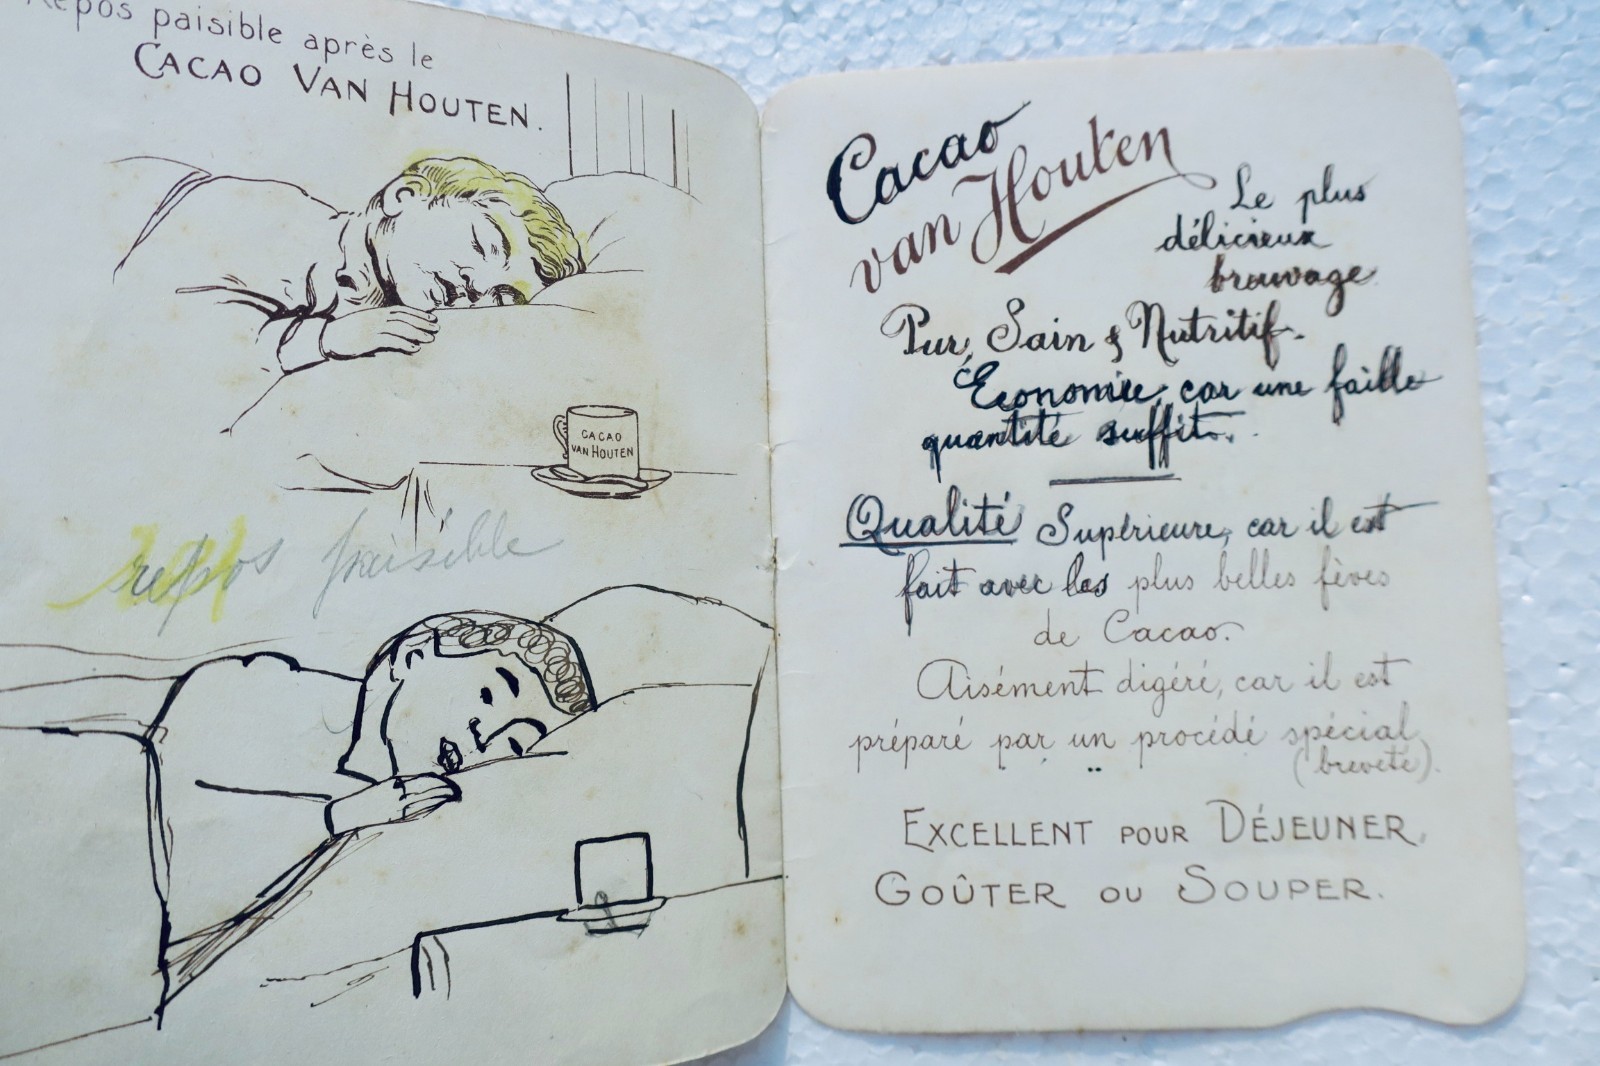 Repos paisible après le
CACAO VAN HOUTEN.
CACAO
VAN HOUTEN
repos paisible
Cacao
van Houten
Le plus
délicieux
brouvage
Pur, Sain & Nutritif.
Economie, car une faille
quantité suffit.
Qualité Supérieure, car il est
fait avec les plus belles fèves
de Cacao.
Aisément digéré, car il est
préparé par un procédé spécial
(breveté).
EXCELLENT POUR DÉJEUNER,
GOÛTER OU SOUPER.